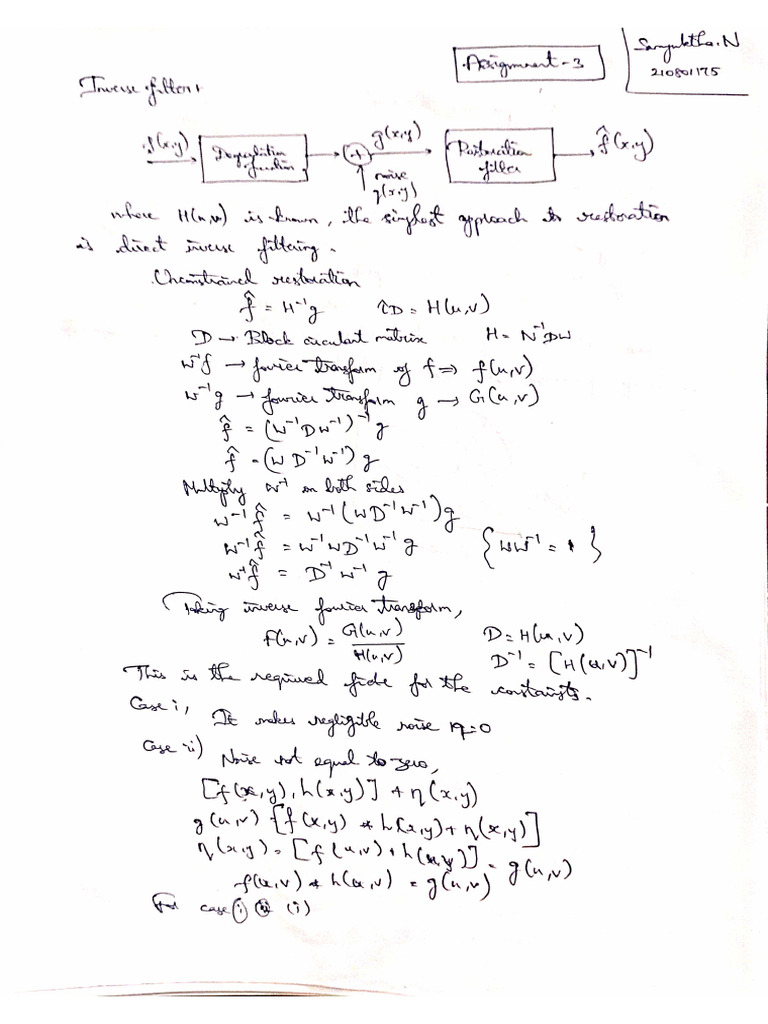 Assignment - 3
Samyuktha.N
210801175
Inverse filter :
f(x,y)
Degradation function
+
g(x,y)
noise
η(x,y)
Restoration filter
f̂(x,y)
where H(u,v) is known, the simplest approach to restoration
is direct inverse filtering.
Unconstrained restoration
f̂ = H⁻¹g D = H(u,v)
D → Block circulant matrix H = W⁻¹DW
W⁻¹f → fourier transform of f ⇒ f(u,v)
W⁻¹g → fourier transform g → G(u,v)
f̂ = (W⁻¹DW⁻¹)⁻¹g
f̂ = (W D⁻¹W⁻¹) g
Multiply W⁻¹ on both sides
W⁻¹f̂ = W⁻¹(WD⁻¹W⁻¹)g
W⁻¹f̂ = W⁻¹WD⁻¹W⁻¹g {WW⁻¹ = 1}
W⁻¹f̂ = D⁻¹W⁻¹g
Taking inverse fourier transform,
F(u,v) = G(u,v) / H(u,v) D = H(u,v)
D⁻¹ = [H(u,v)]⁻¹
This is the required for the
Case i, It makes negligible noise η=0
Case ii) Noise not equal to zero,
[f(x,y), h(x,y)] + η(x,y)
g(u,v) [f(x,y) * h(x,y) + η(x,y)]
η(x,y) = [f(u,v) + h(x,y)] = g(u,v)
f(u,v) * h(u,v) = g(u,v)
For case (i)